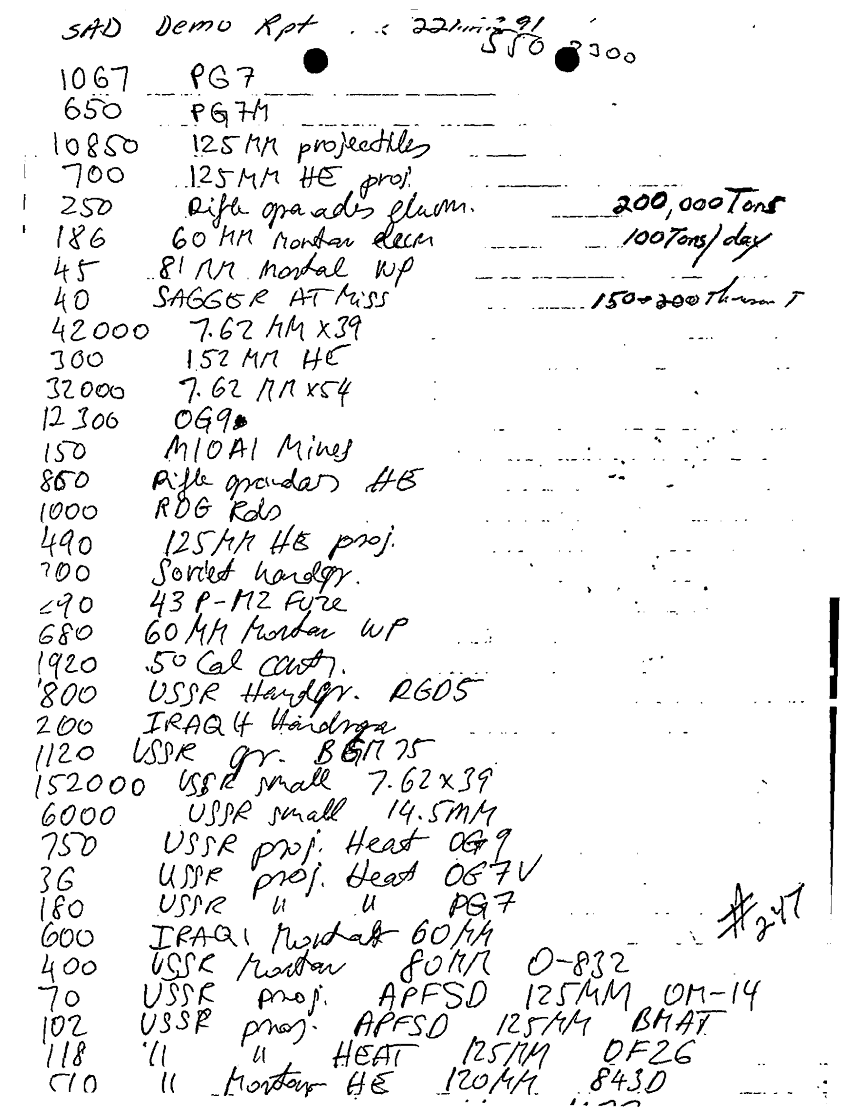 SAD Demo Rpt 91
550 2300
1067 PG7
650 PG7M
10850 125 MM projectiles
700 125 MM HE proj.
250 Rifle grenades illum.
200,000 Tons
186 60 MM Mortar
100 Tons/day
45 81 MM Mortar WP
40 SAGGER AT Miss
150-200 T
42000 7.62 MM x39
300 152 MM HE
32000 7.62 MM x54
12300 OG9
150 M10A1 Mines
Rifle HE
1000 RDG Rds
490 125 MM HE proj.
Soviet handgr.
43 P-M2 Fuze
680 60 MM Mortar WP
1920 .50 Cal
800 USSR Handgr. RGD5
200 IRAQI
1120 USSR gr.
152000 USSR small 7.62x39
6000 USSR small 14.5MM
750 USSR proj. Heat OG9
36 USSR proj. Heat OG7V
180 USSR " " PG7
#247
600 IRAQI 60MM
400 USSR Mortar 80MM O-832
70 USSR proj. APFSD 125MM OM-14
102 USSR proj. APFSD 125MM BMAT
118 " " HEAT 125MM OF26
" Mortar HE 120MM 843D